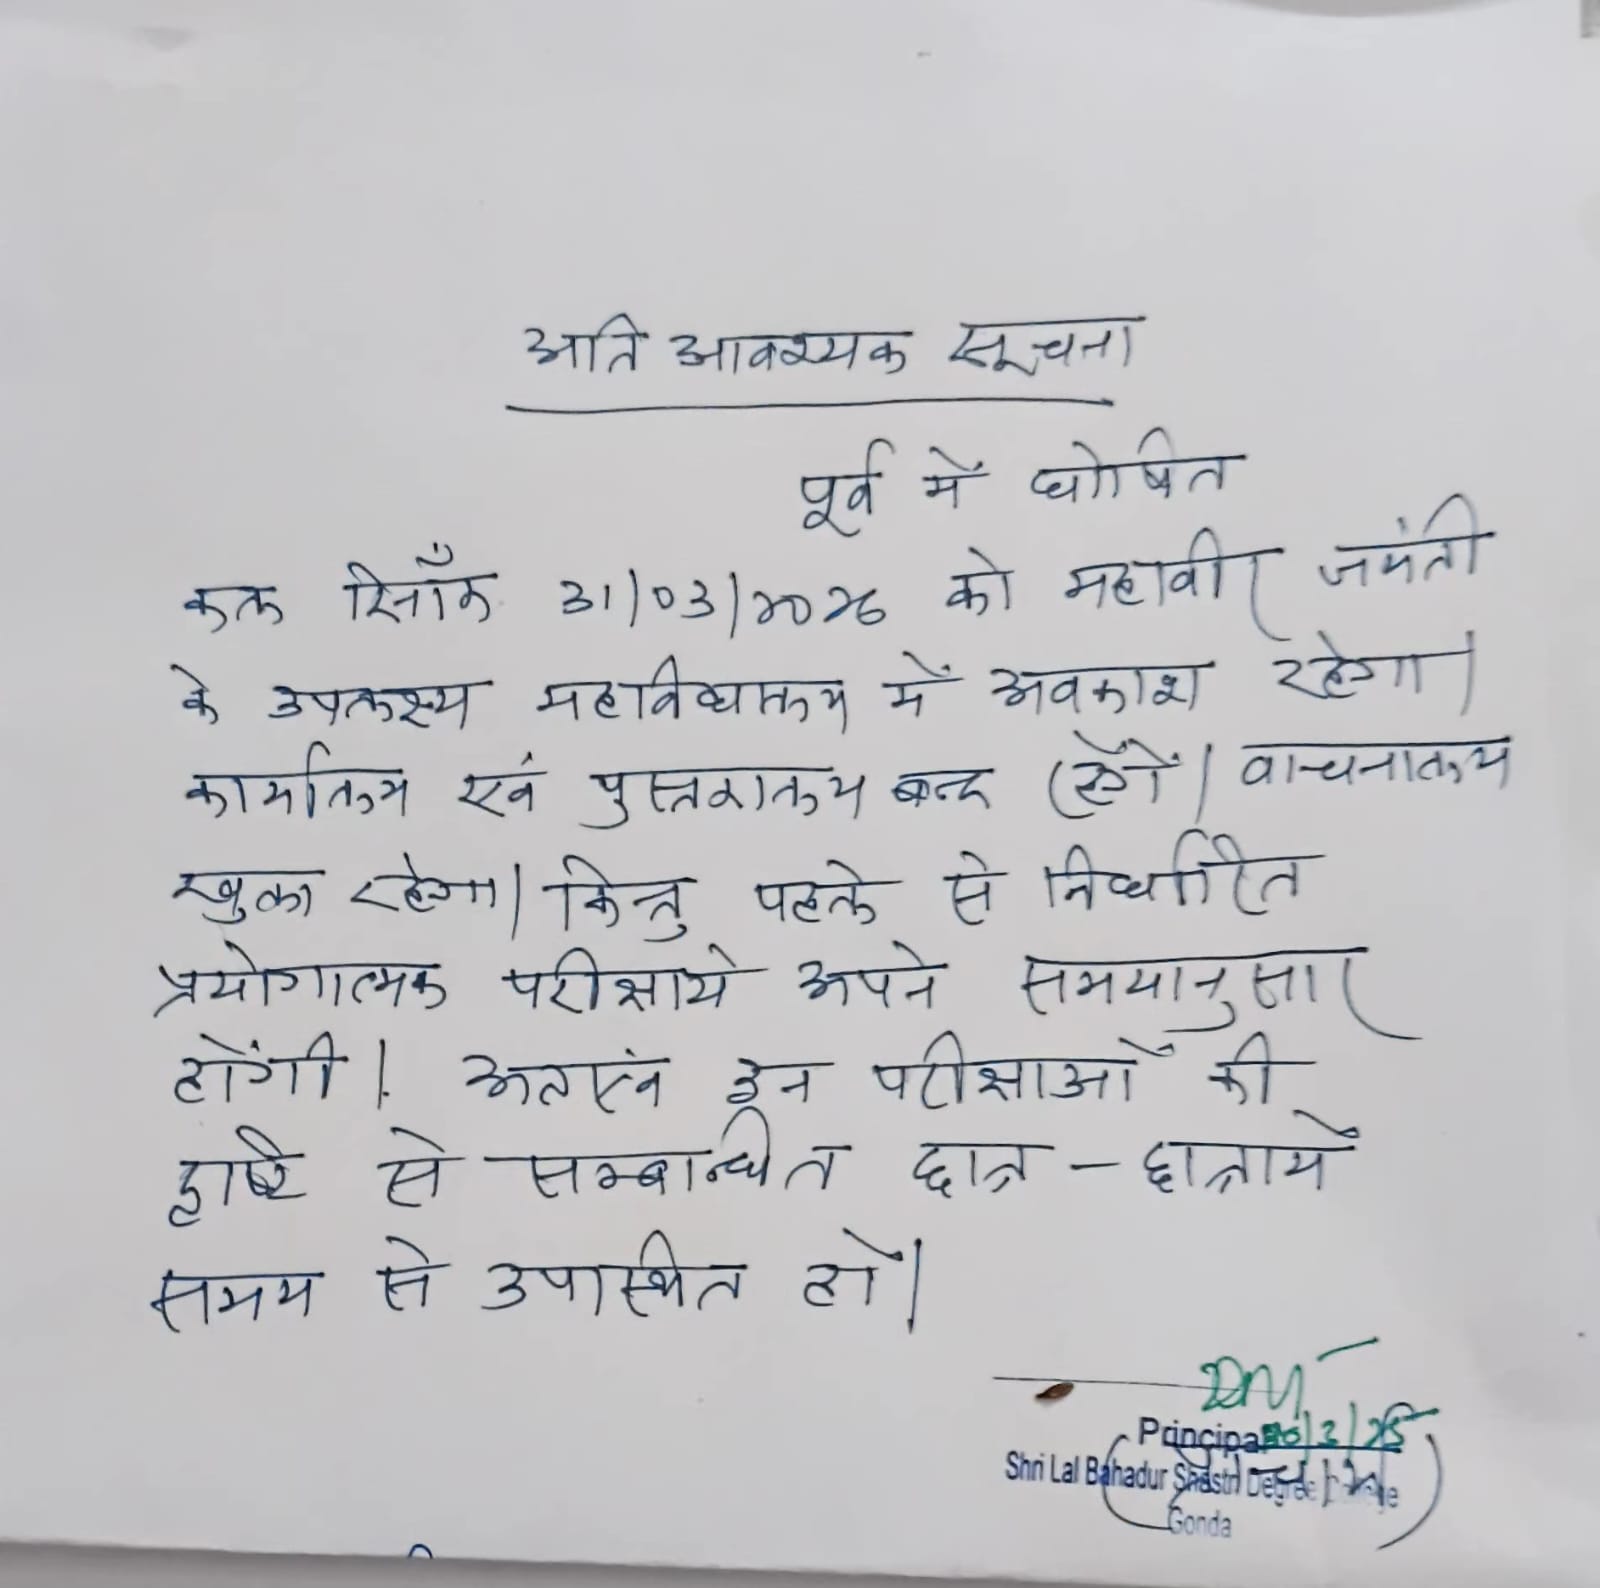 अति आवश्यक सूचना
पूर्व में घोषित
कल दिनाँक 31/03/2026 को महावीर जयंती
के उपलक्ष्य महाविद्यालय में अवकाश रहेगा।
कार्यालय एवं पुस्तकालय बन्द रहेंगें। वाचनालय
खुला रहेगा। किन्तु पहले से निर्धारित
प्रयोगात्मक परीक्षाये अपने समयानुसार
होंगी। अतएवं इन परीक्षाओं की
दृष्टि से सम्बन्धित छात्र - छात्रायें
समय से उपस्थित हों।
Principal
Shri Lal Bahadur Shastri Degree
Gonda